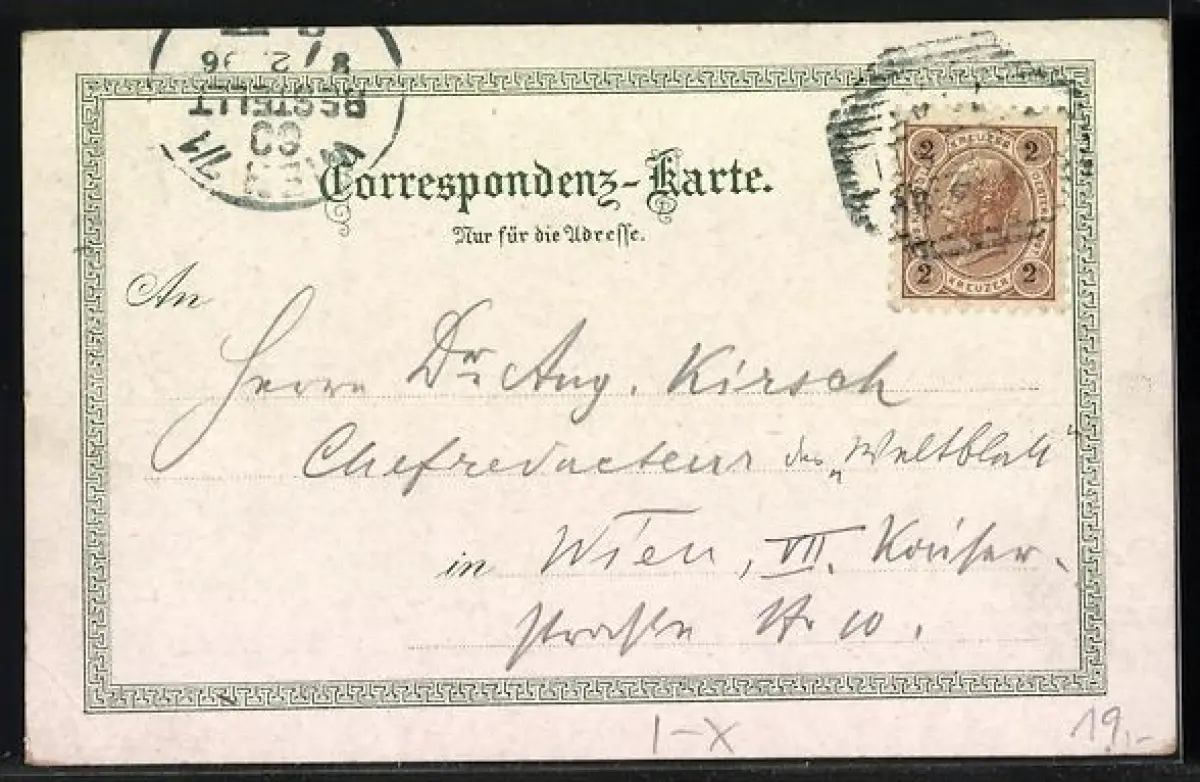 8 2 96
BESTELLT
WIEN 60
7/1
Correspondenz-Karte.
Nur für die Adresse.
2 KREUZER 2
2 KREUZER 2
An
Herrn Dr Aug. Kirsch
Chefredacteur des „Weltblatt"
in Wien, VII. Kaiser-
straße Nr 10.
I-X
19,-